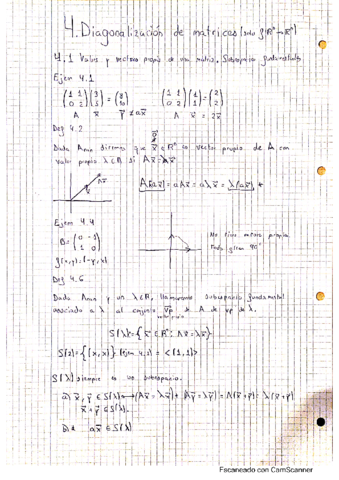 4. Diagonalización de matrices (solo f: ℝⁿ → ℝⁿ)
4.1 Valores y vectores propios de una matriz. Subespacios fundamentales
Ejem 4.1
(1 1; 0 2) (3; 5) = (8; 10)   (1 1; 0 2) (1; 1) = (2; 2)
A x⃗ y⃗ ≠ a x⃗   A x⃗ = 2x⃗
Def 4.2
Dada Anxn diremos que x⃗ ∈ ℝⁿ es vector propio de A con
valor propio λ ∈ ℝ si A x⃗ = λx⃗
A(ax⃗) = aAx⃗ = aλx⃗ = λ(ax⃗)
Ax⃗
Ejem 4.4
B = (0 -1; 1 0)
No tiene vectores propios.
Todo giran 90°
f(x,y) = (-y,x)
Def 4.6
Dada Anxn y un λ ∈ ℝ, llamaremos subespacio fundamental
asociado a λ al conjunto vp de A de vp λ.
S(λ) = { x⃗ ∈ ℝⁿ : Ax⃗ = λx⃗ }
S(2) = {(x,x)} (Ejem 4.2) = <(1,1)>
S(λ) siempre es un subespacio.
a) x⃗, y⃗ ∈ S(λ) → (Ax⃗ = λx⃗) + (Ay⃗ = λy⃗) = A(x⃗+y⃗) = λ(x⃗+y⃗)
x⃗ + y⃗ ∈ S(λ).
b) ax⃗ ∈ S(λ)
Escaneado con CamScanner